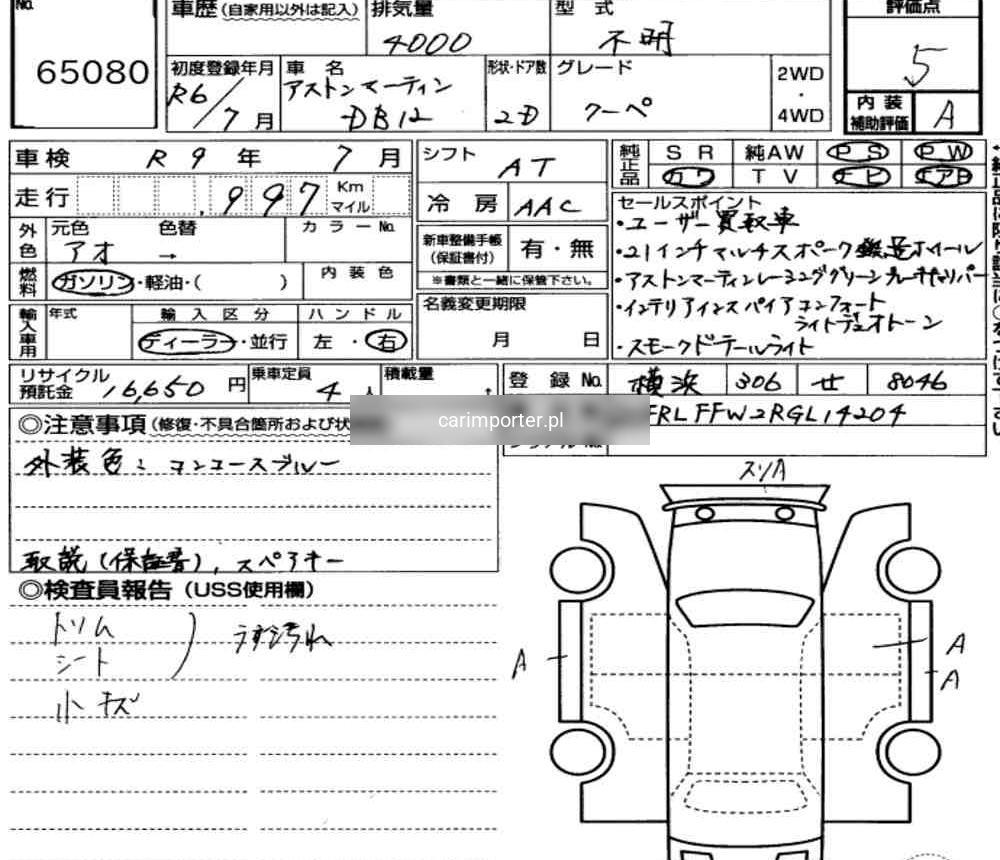 No.
車歴 (自家用以外は記入) 排気量 型式 評価点
65080 4000 不明 5
初度登録年月 車名 形状・ドア数 グレード 2WD・4WD
R6/7月 アストンマーティン DB12 2-D クーペ
内装補助評価 A
車検 R9年7月 シフト AT 純正品 SR 純AW PS PW
走行 997 Km マイル 冷房 AAC カワ TV ナビ エアB
セールスポイント
外色 元色 色替 カラーNo. 新車整備手帳(保証書付) 有・無
アオ →
・ユーザー買取車
・21インチマルチスポーク鍛造ホイール
燃料 ガソリン・軽油・( ) 内装色 ※書類と一緒に保管下さい。
・アストンマーティンレーシンググリーンブレーキキャリパー
輸入車用 年式 輸入区分 ハンドル 名義変更期限
ディーラー・並行 左・右 月 日
・インテリアインスパイアコンフォート
ライトデュオトーン
・スモークドテールライト
リサイクル預託金 16,650円 乗車定員 4人 積載量 t 登録No. 横浜 306 せ 8046
carimporter.pl
FRLFFW2RGL14204
◎注意事項 (修復・不具合箇所および状
外装色:コンコースブルー
取説(保証書), スペアキー
スリA
◎検査員報告 (USS使用欄)
トリム
シート
うす汚れ
小キズ
A
A
A